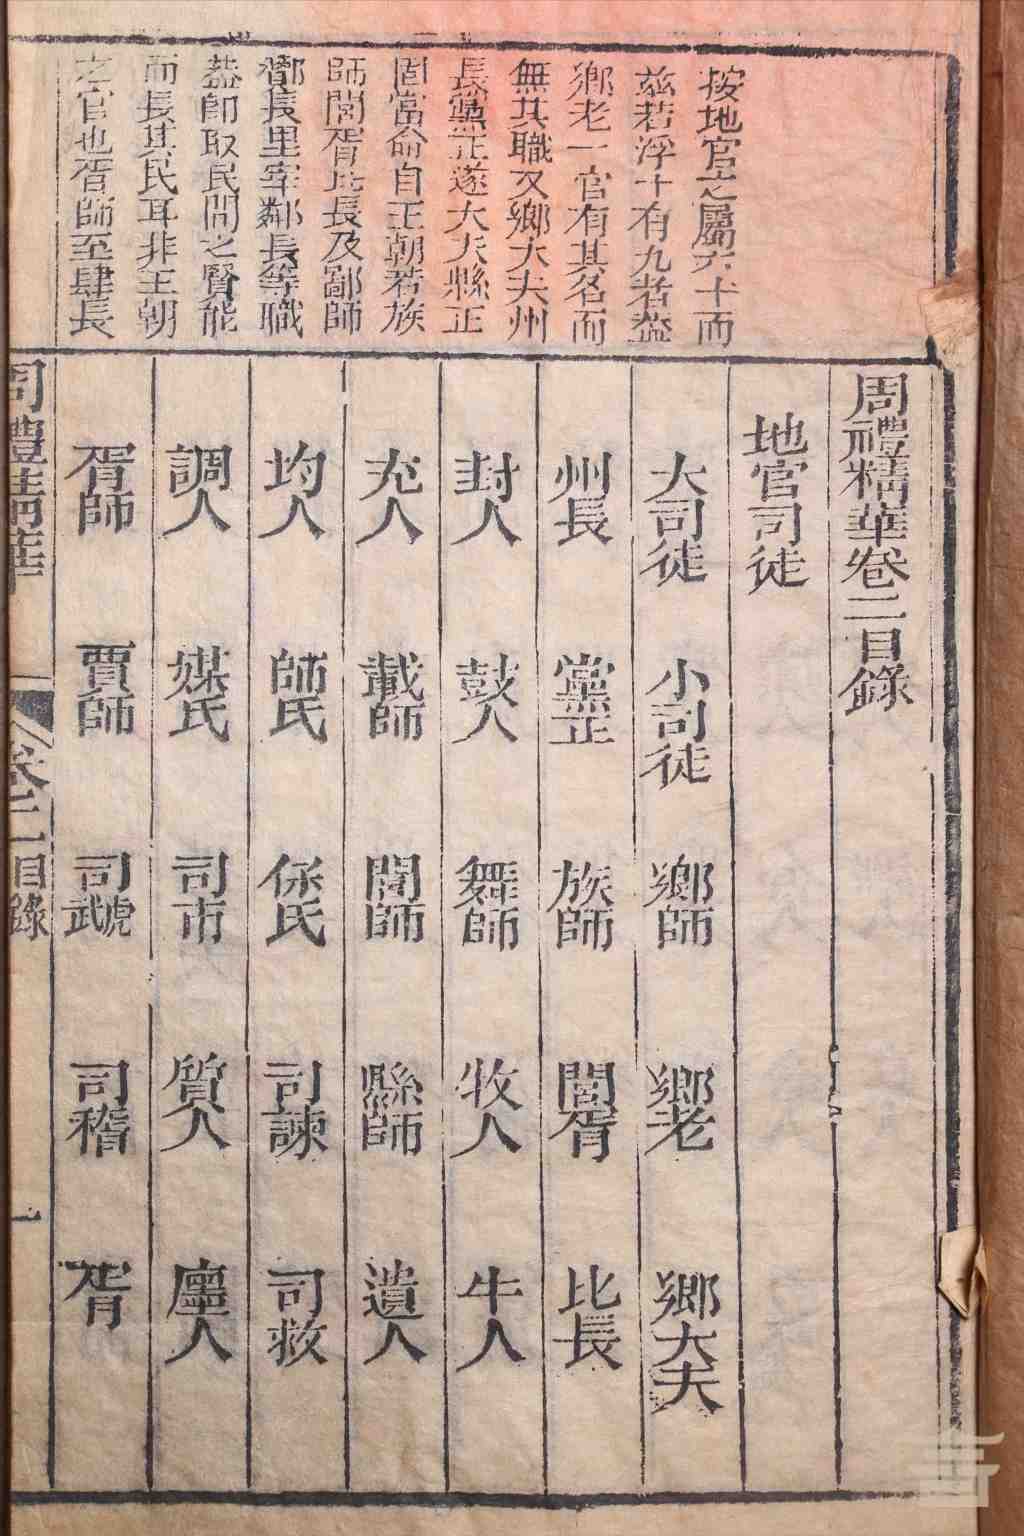 按地官之屬六十而
茲若浮十有九者蓋
鄉老一官有其名而
無其職又鄉大夫州
長黨正遂大夫縣正
固當命自王朝若族
師閭胥比長及鄙師
酇長里宰鄰長等職
蓋卽取民間之賢能
而長其民耳非王朝
之官也胥師至肆長
周禮精華卷二目錄
地官司徒
大司徒 小司徒 鄉師 鄉老 鄉大夫
州長 黨正 族師 閭胥 比長
封人 鼓人 舞師 牧人 牛人
充人 載師 閭師 縣師 遺人
均人 師氏 保氏 司諫 司救
調人 媒氏 司市 質人 廛人
胥師 賈師 司虣 司稽 胥
周禮精華 卷二目錄 一